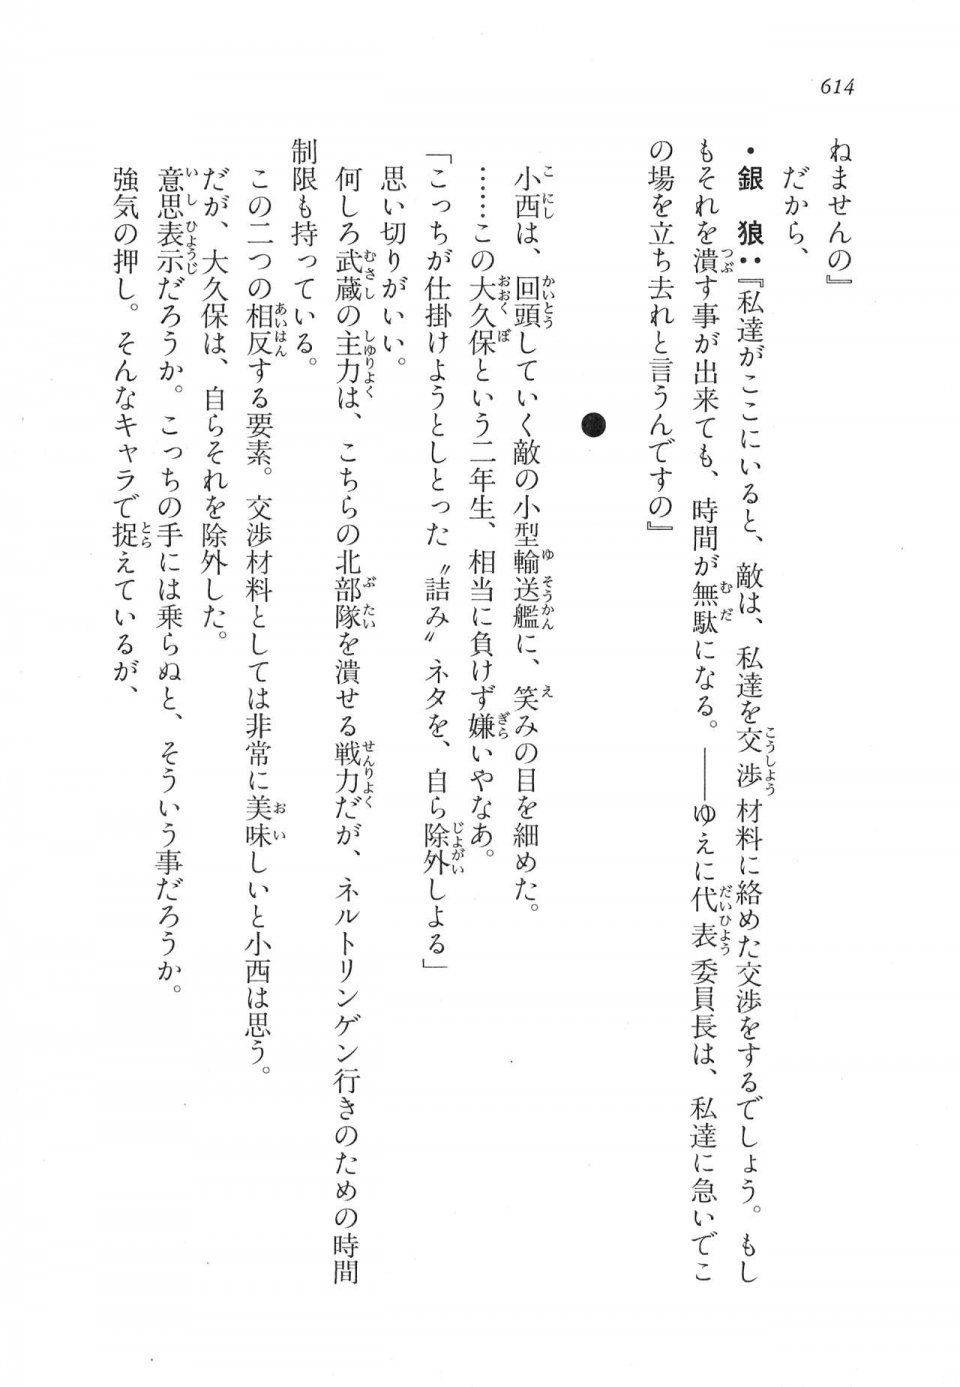 614
ねませんの』
だから、
・銀　狼：『私達がここにいると、敵は、私達を交渉材料に絡めた交渉をするでしょう。もし
もそれを潰す事が出来ても、時間が無駄になる。――ゆえに代表委員長は、私達に急いでこ
の場を立ち去れと言うんですの』
●
小西は、回頭していく敵の小型輸送艦に、笑みの目を細めた。
……この大久保という二年生、相当に負けず嫌いやなあ。
「こっちが仕掛けようとしとった〝詰み〟ネタを、自ら除外しよる」
思い切りがいい。
何しろ武蔵の主力は、こちらの北部隊を潰せる戦力だが、ネルトリンゲン行きのための時間
制限も持っている。
この二つの相反する要素。交渉材料としては非常に美味しいと小西は思う。
だが、大久保は、自らそれを除外した。
意思表示だろうか。こっちの手には乗らぬと、そういう事だろうか。
強気の押し。そんなキャラで捉えているが、